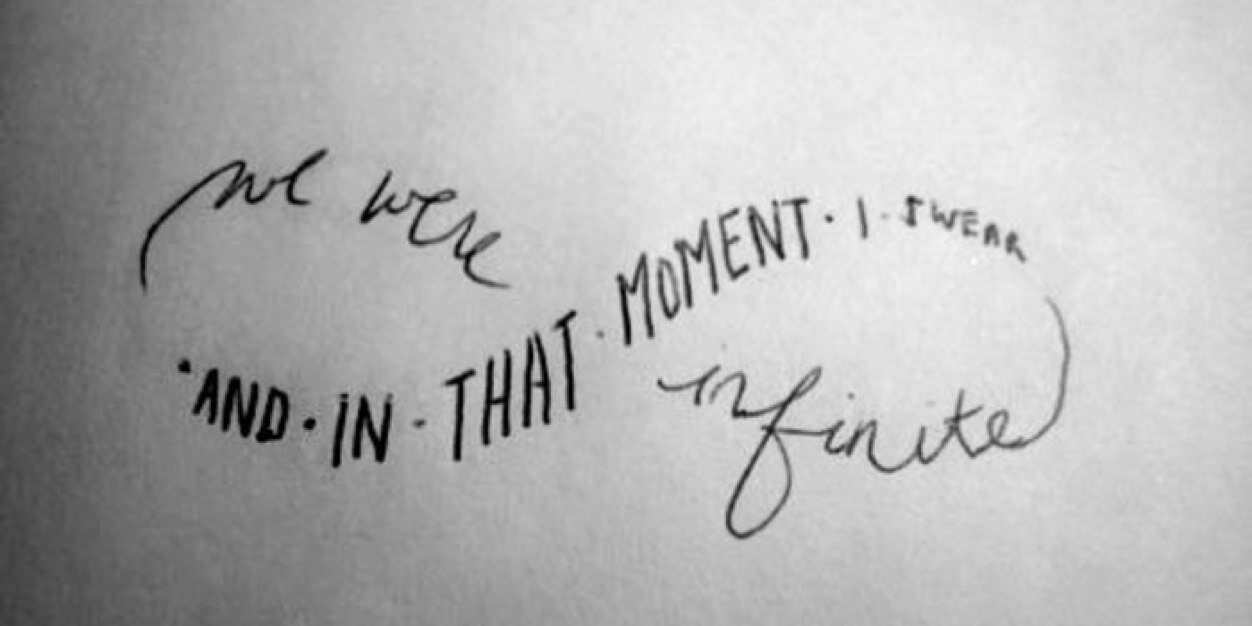 we were
·AND·IN·THAT·MOMENT·I·SWEAR
infinite